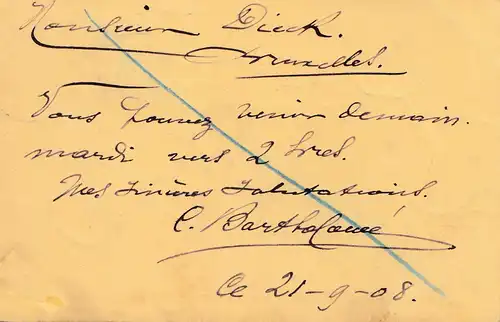 Monsieur Dieck.
Bruxelles.
Vous pouvez venir demain.
mardi vers 2 hres.
Mes sincères salutations.
C. Bartholomé
Ce 21-9-08.